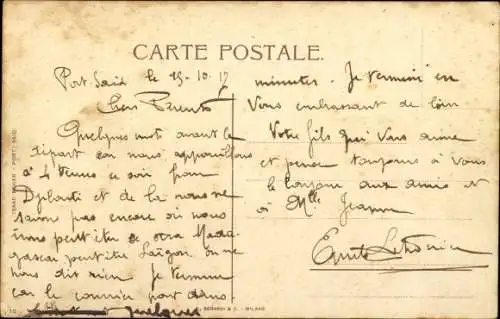 CARTE POSTALE.
Port-Said le 25-10-17
Chers Parents
Quelques mot avant le
départ car nous appareillons
à 4 heures ce soir pour
Djibouti et de la nous ne
savons pas encore où nous
irons peut être ce sera Mada
gascar peut être Saïgon on ne
nous dit rien Je termine
car le courrier part dans
quelques
minutes. Je termine en
Vous embrassant de loin
Votre fils qui Vous aime
et pense toujours à vous
le bonjour aux amis et
à Mlle Jeanne
Emile
PORT-SAID
10
BERARDI & C. - MILANO